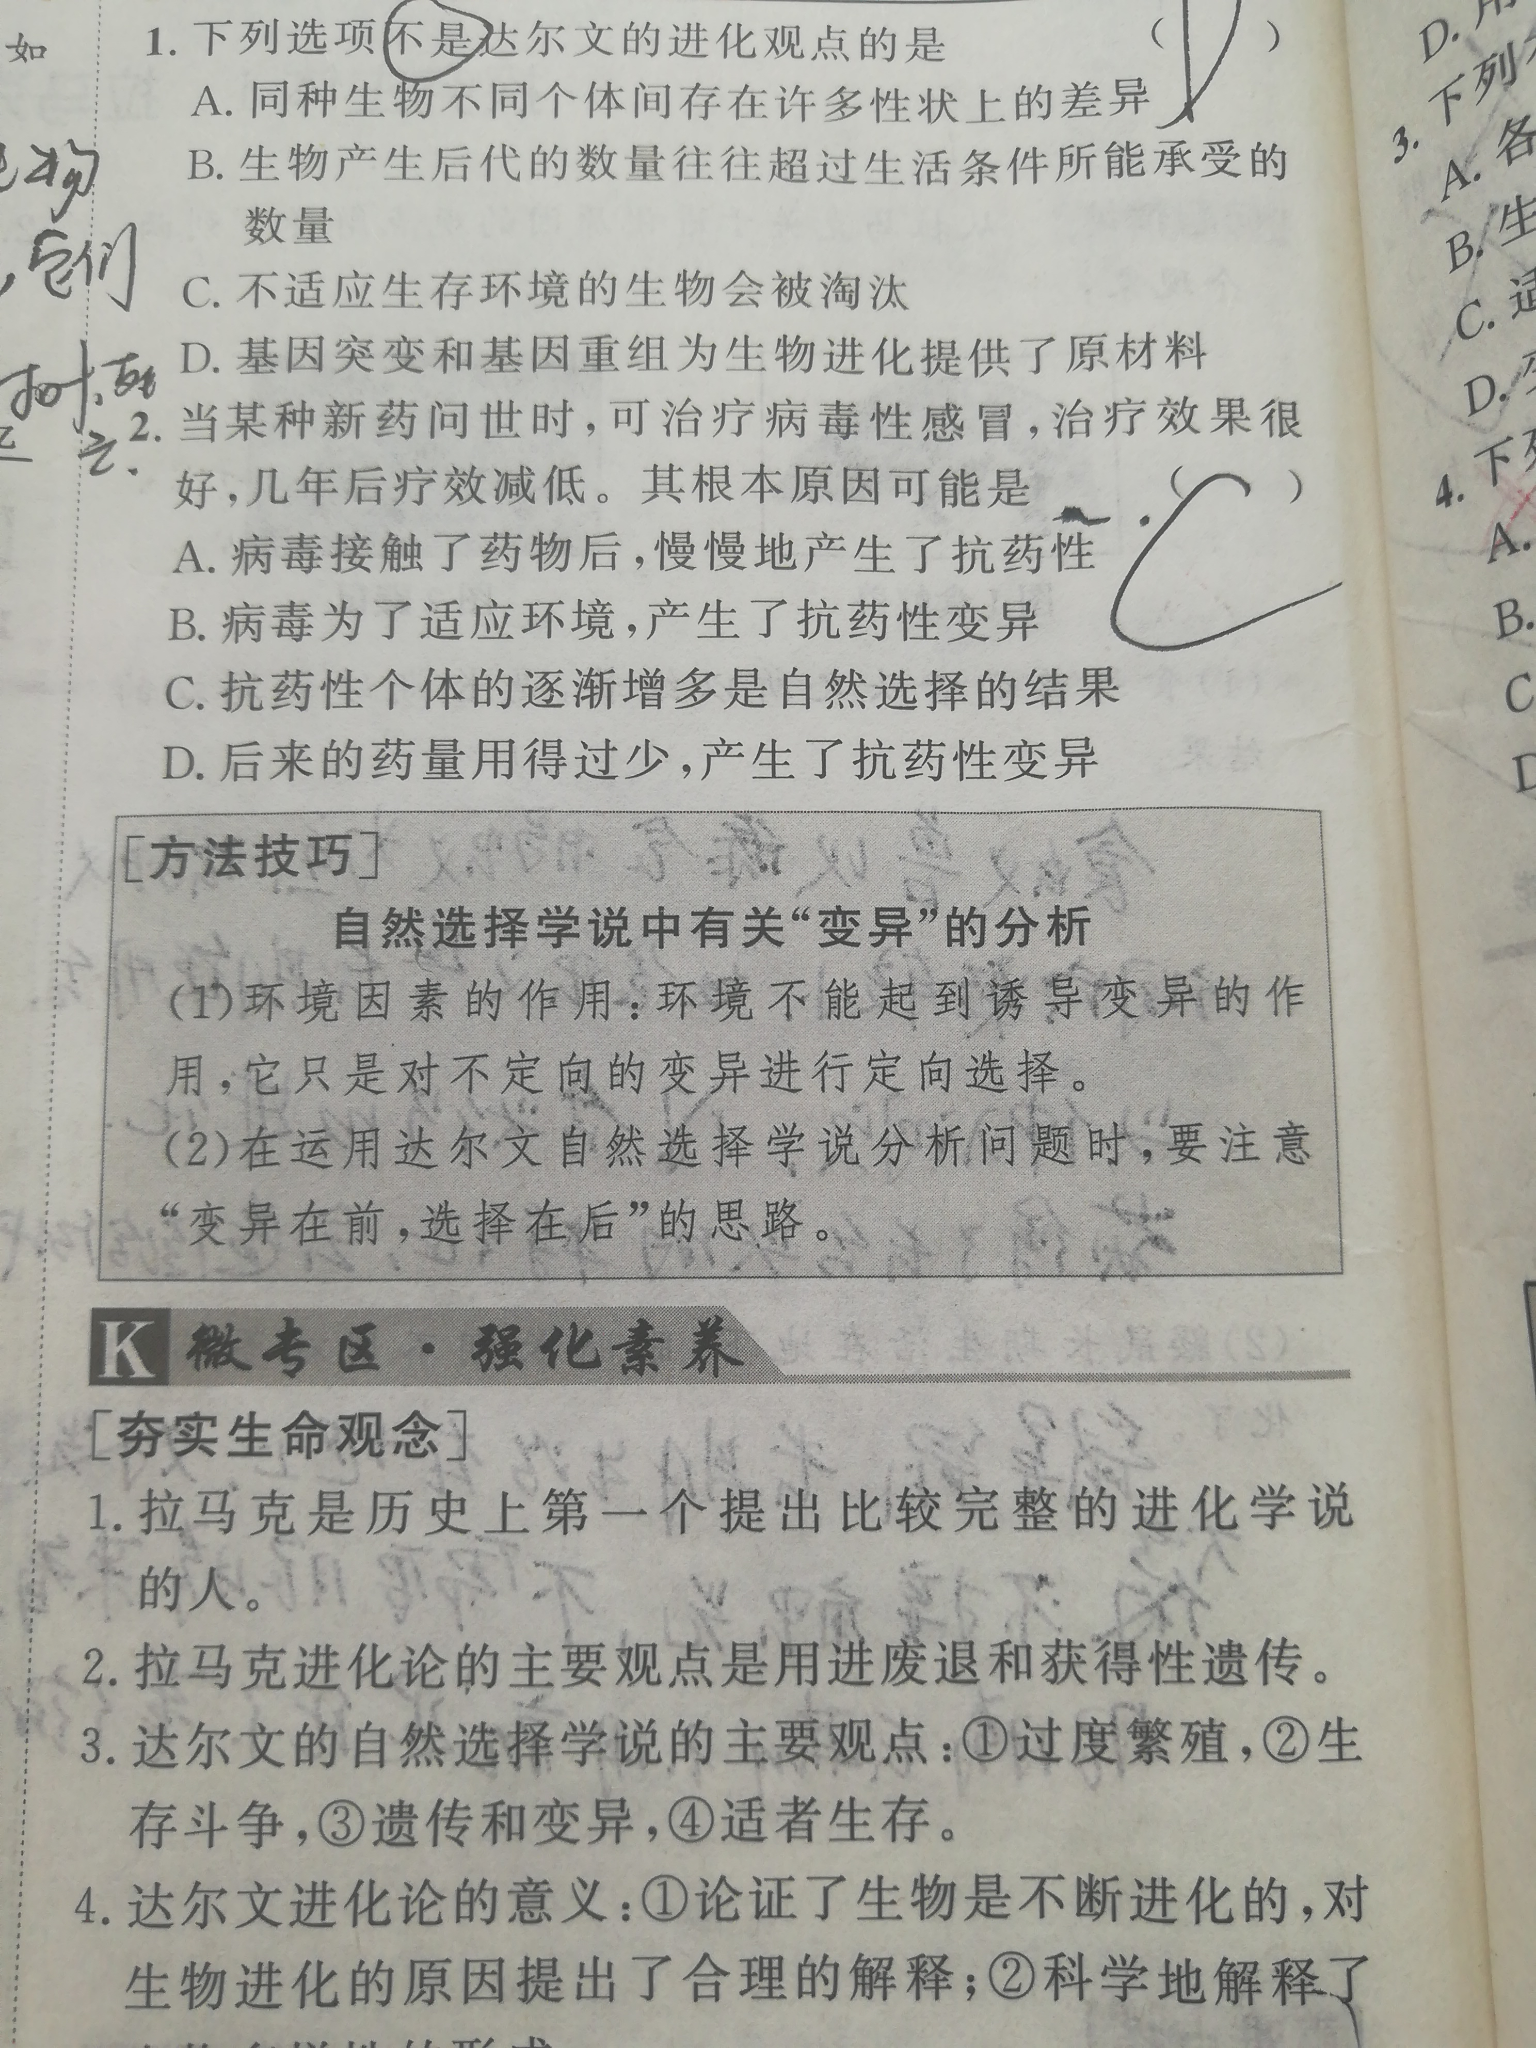 如
1. 下列选项不是达尔文的进化观点的是 ( )
A. 同种生物不同个体间存在许多性状上的差异
B. 生物产生后代的数量往往超过生活条件所能承受的
数量
C. 不适应生存环境的生物会被淘汰
D. 基因突变和基因重组为生物进化提供了原材料
2. 当某种新药问世时,可治疗病毒性感冒,治疗效果很
好,几年后疗效减低。其根本原因可能是 ( )
A. 病毒接触了药物后,慢慢地产生了抗药性
B. 病毒为了适应环境,产生了抗药性变异
C. 抗药性个体的逐渐增多是自然选择的结果
D. 后来的药量用得过少,产生了抗药性变异
物
,它们
[方法技巧]
自然选择学说中有关“变异”的分析
(1)环境因素的作用:环境不能起到诱导变异的作
用,它只是对不定向的变异进行定向选择。
(2)在运用达尔文自然选择学说分析问题时,要注意
“变异在前,选择在后”的思路。
K 微专区·强化素养
[夯实生命观念]
1. 拉马克是历史上第一个提出比较完整的进化学说
的人。
2. 拉马克进化论的主要观点是用进废退和获得性遗传。
3. 达尔文的自然选择学说的主要观点:①过度繁殖,②生
存斗争,③遗传和变异,④适者生存。
4. 达尔文进化论的意义:①论证了生物是不断进化的,对
生物进化的原因提出了合理的解释;②科学地解释了
D. 用
3. 下列
A. 各
B. 生
C. 适
D.
4. 下列
A.
B.
C
D